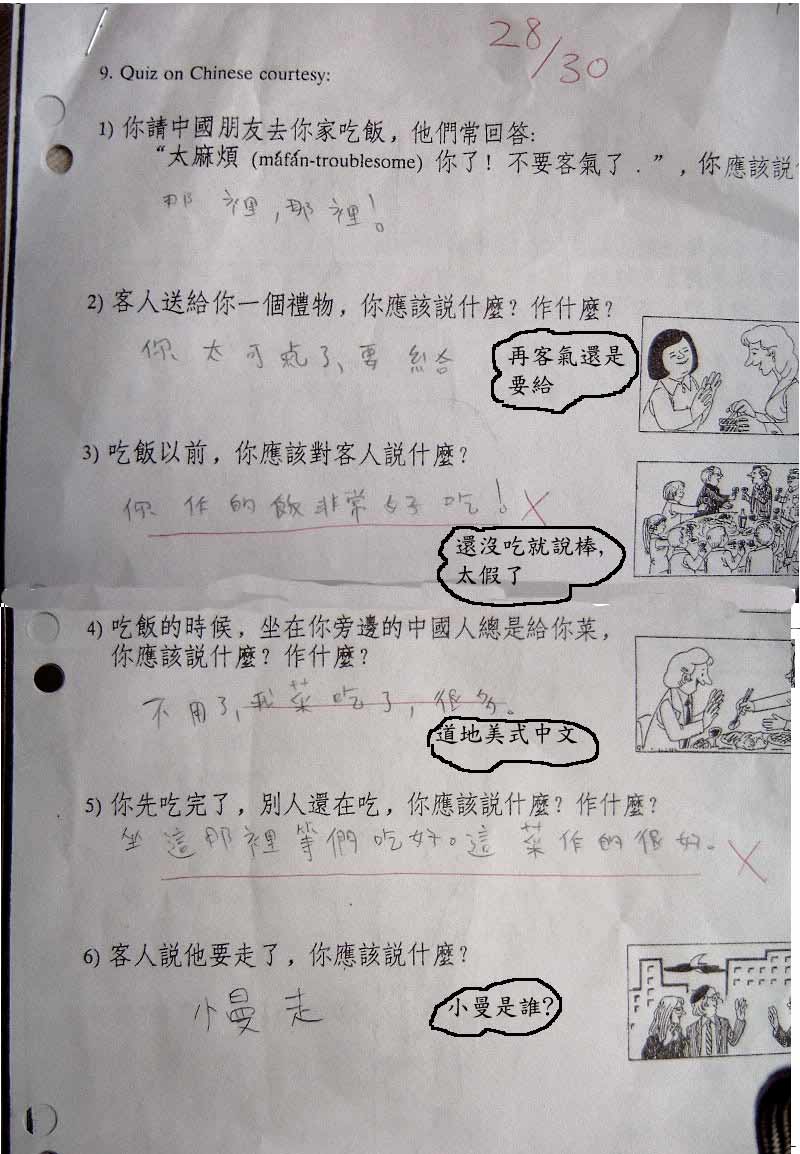 28/30
9. Quiz on Chinese courtesy:
1) 你請中國朋友去你家吃飯，他們常回答:
“太麻煩 (máfán-troublesome) 你了！不要客氣了．”，你應該說
那裡，那裡！
2) 客人送給你一個禮物，你應該說什麼？作什麼？
你太可氣了、要給
再客氣還是
要給
3) 吃飯以前，你應該對客人說什麼？
你作的飯非常好吃！
還沒吃就說棒，
太假了
4) 吃飯的時候，坐在你旁邊的中國人總是給你菜，
你應該說什麼？作什麼？
不用了，我菜吃了，很多。
道地美式中文
5) 你先吃完了，別人還在吃，你應該說什麼？作什麼？
坐這那裡等們吃好。這菜作的很好。
6) 客人說他要走了，你應該說什麼？
小曼走
小曼是誰？